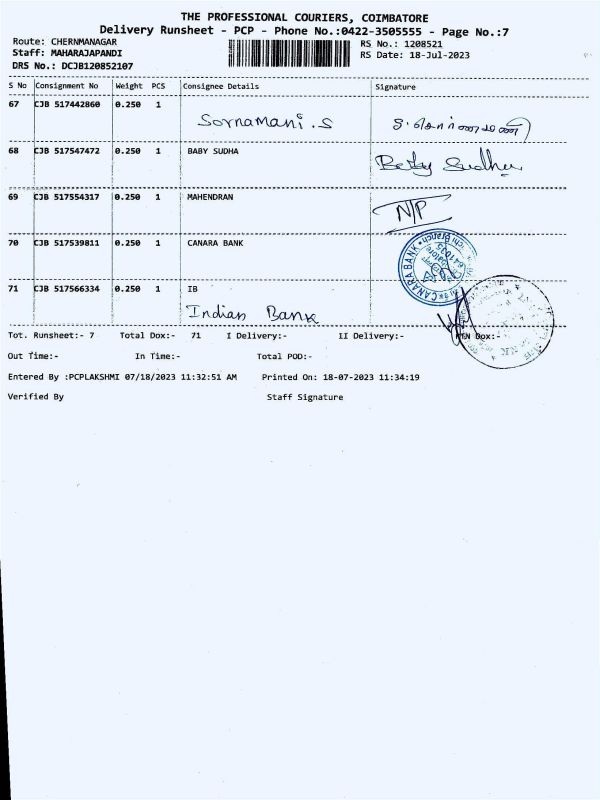 THE PROFESSIONAL COURIERS, COIMBATORE
Delivery Runsheet - PCP - Phone No.:0422-3505555 - Page No.:7
Route: CHERNMANAGAR RS No.: 1208521
Staff: MAHARAJAPANDI RS Date: 18-Jul-2023
DRS No.: DCJB120852107
S No Consignment No Weight PCS Consignee Details Signature
67 CJB 517442860 0.250 1
Sornamani.S
68 CJB 517547472 0.250 1 BABY SUDHA
Baby Sudha
69 CJB 517554317 0.250 1 MAHENDRAN
N/P
70 CJB 517539811 0.250 1 CANARA BANK
CANARA BANK
71 CJB 517566334 0.250 1 IB
Indian Bank
Tot. Runsheet:- 7 Total Dox:- 71 I Delivery:- II Delivery:- Dox:-
Out Time:- In Time:- Total POD:-
Entered By :PCPLAKSHMI 07/18/2023 11:32:51 AM Printed On: 18-07-2023 11:34:19
Verified By Staff Signature